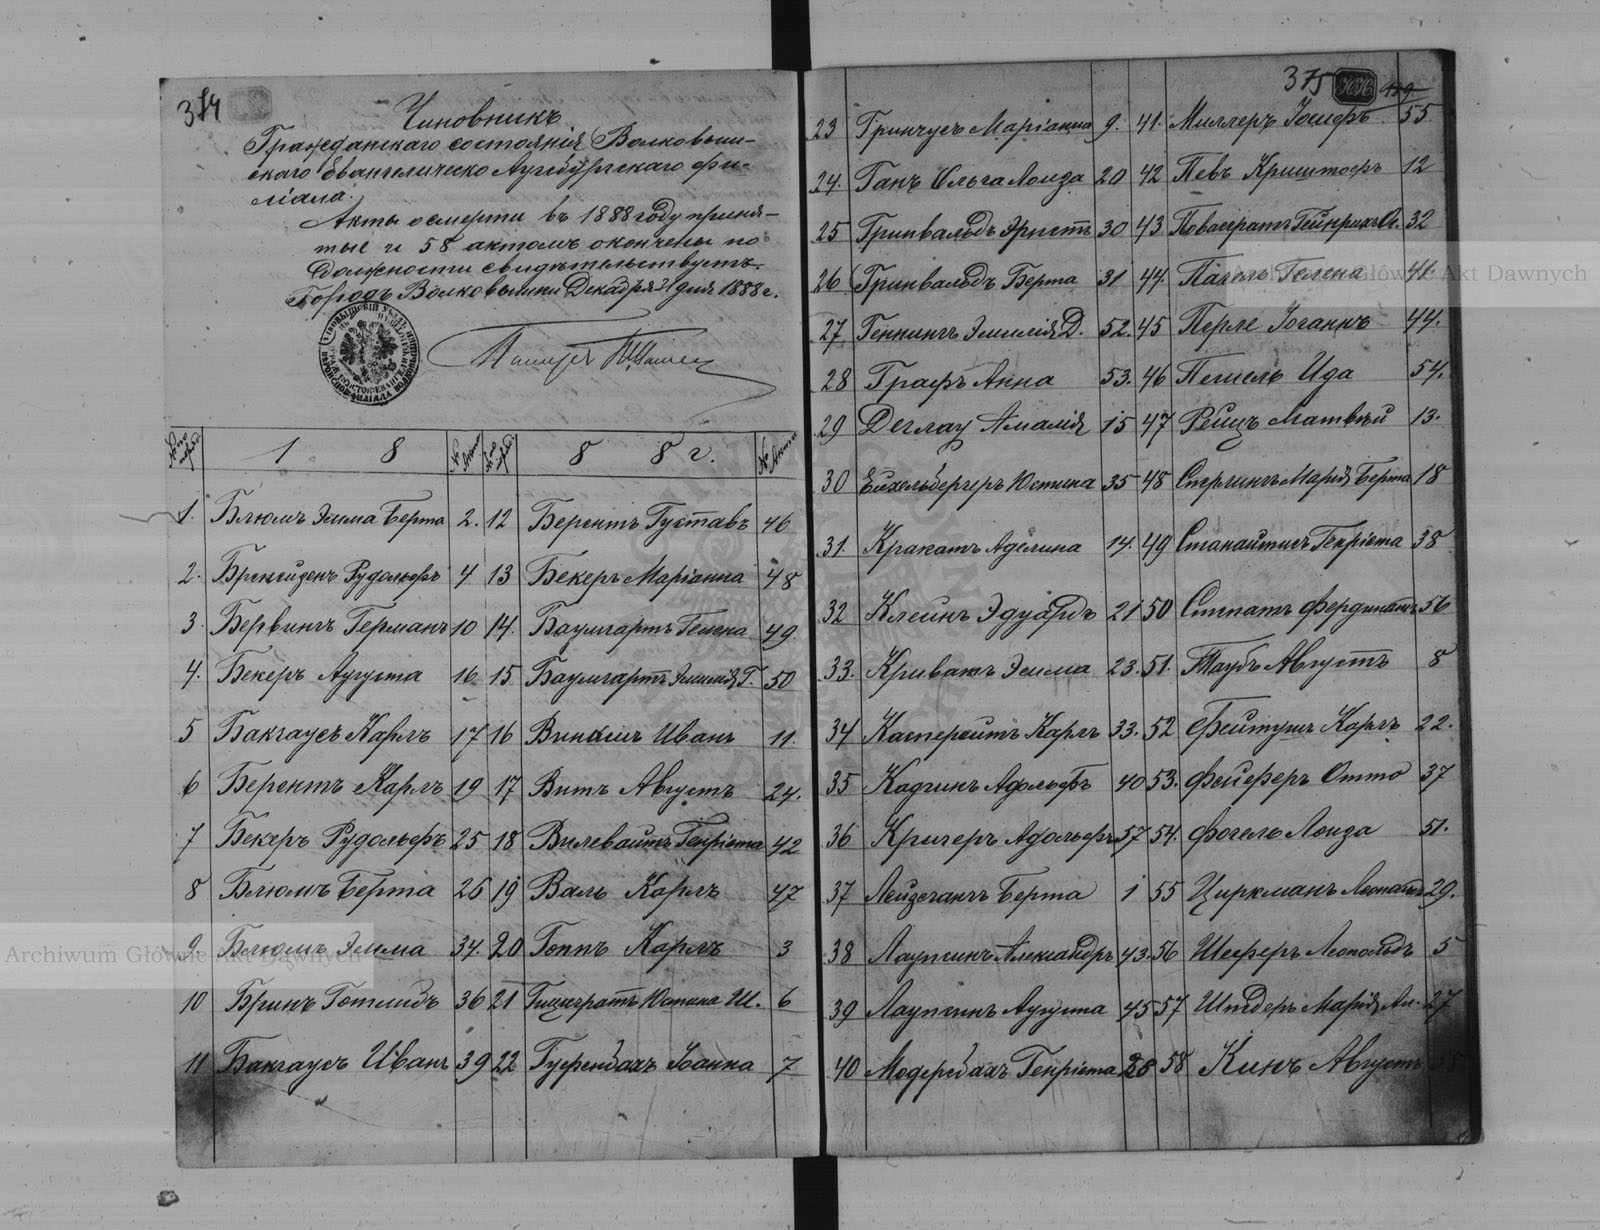 374
Чиновникъ
Гражданскаго состоянія Волковыш-
скаго Евангелическо Аугсбургскаго фи-
ліала.
Акты о смерти въ 1888 году приня-
тые и 58 актомъ окончены по
должности свидѣтельствуетъ.
Городъ Волковышки Декабря 31 дня 1888 г.
№ по порядку 1 8 № Акта № по порядку 8 8 г. № Акта
1. Блюмъ Эмма Берта 2. 12 Берентъ Густавъ 46
2. Рудольфъ 4 13 Бекеръ Маріанна 48
3. Бервингъ Германъ 10 14. Баумгартъ Гелена 49
4. Бекеръ Августа 16 15 Баумгартъ Эмилія Г. 50
5 Бакгаусъ Карлъ 17 16 Иванъ 11.
6 Берентъ Карлъ 19 17 Витъ Августъ 24.
7 Бекеръ Рудольфъ 25 18 Вилевайтъ Генріета 42
8 Блюмъ Берта 26 19 Валь Карлъ 47
9. Блюмъ Эмма 34. 20 Гоппъ Карлъ 3
10 Бринъ Готлибъ 36 21 Юстина Ш. 6
11 Бакгаусъ Иванъ 39 22 Гуфенбахъ Іоанна 7
375
23 Гринчусъ Маріанна 9. 41. Миллеръ Іосифъ 55
24. Ганъ Ольга Лоиза 20 42 Певъ Криштофъ 12
25 Гринвальдъ Эрнстъ 30 43 32
26 Гринвальдъ Берта 31 44. Гелена 41
27. Геннингъ Эмилія Д. 52. 45 Перле Іоганнъ 44.
28 Графъ Анна 53. 46 Пешель Ида 54.
29 Деглау Амалія 15 47 Рейцъ Матвѣй 13.
30 Ейхельбергеръ Юстина 35 48 Стерлингъ Марія Берта 18
31. Кракатъ Аделина 14. 49 Станайтисъ Генріета 38
32 Клейнъ Эдуардъ 21 50 Фердинантъ 56
33. Криватъ Эмма 23. 51. Таубъ Августъ 8
34 Касперейтъ Карлъ 33. 52 Фейтушъ Карлъ 22.
35 Кадгинъ Адольфъ 40 53. Фейферъ Отто 37
36 Кригеръ Адольфъ 57 54. Фогель Лоиза 51.
37 Лейзегангъ Берта 1 55 Циркманъ 29.
38 Лаупсинъ Александръ 43. 56 Шеферъ Леопольдъ 5
39 Лаупсинъ Августа 45 57 Марія Ан. 27
40 Модербахъ Генріета 28 58 Кинъ Августъ
Archiwum Główne Akt Dawnych
Archiwum Główne Akt Dawnych